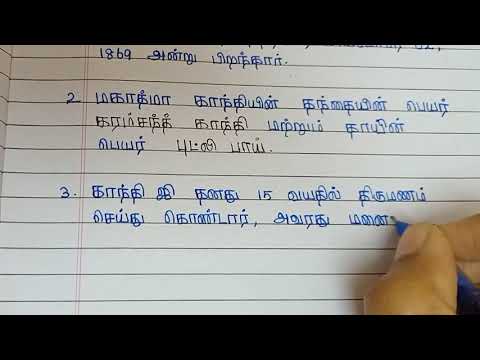 1869 அன்று பிறந்தார்.
2. மகாத்மா காந்தியின் தந்தையின் பெயர்
கரம்சந்த் காந்தி மற்றும் தாயின்
பெயர் புட்லி பாய்.
3. காந்தி ஜி தனது 15 வயதில் திருமணம்
செய்து கொண்டார், அவரது மனை